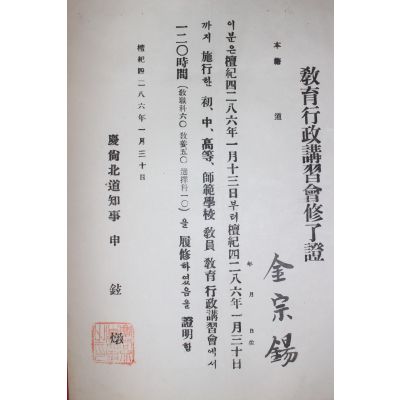 敎育行政講習會修了證
本籍 道
金宗錫
年 月 日生
이분은檀紀四二八六年一月十三日부터檀紀四二八六年一月三十日
까지 施行한 初、中、高等、師範學校 敎員 敎育行政講習會에서
一二○時間(敎職科六○敎養五○選擇科一○)을 履修하였음을 證明함
檀紀四二八六年一月三十日
慶尙北道知事 申鉉燉